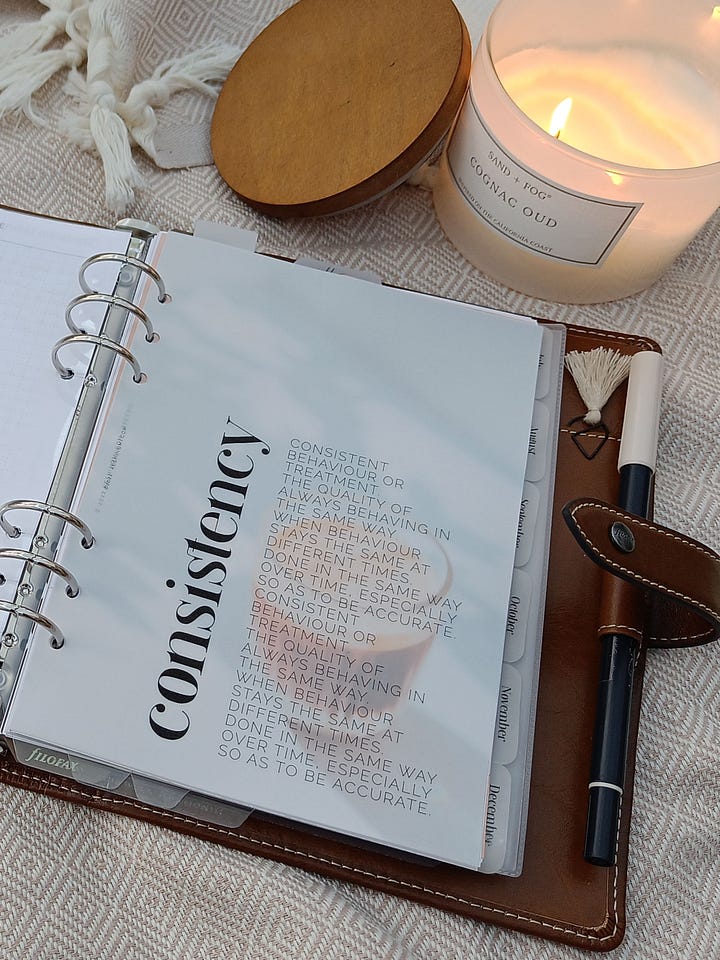 SAND + FOG®
COGNAC OUD
INSPIRED BY THE CALIFORNIA COAST
consistency
CONSISTENT
BEHAVIOUR OR
TREATMENT.
THE QUALITY OF
ALWAYS BEHAVING IN
THE SAME WAY.
WHEN BEHAVIOUR
STAYS THE SAME AT
DIFFERENT TIMES.
DONE IN THE SAME WAY
OVER TIME, ESPECIALLY
SO AS TO BE ACCURATE.
CONSISTENT
BEHAVIOUR OR
TREATMENT.
THE QUALITY OF
ALWAYS BEHAVING IN
THE SAME WAY.
WHEN BEHAVIOUR
STAYS THE SAME AT
DIFFERENT TIMES.
DONE IN THE SAME WAY
OVER TIME, ESPECIALLY
SO AS TO BE ACCURATE.
July
August
September
October
November
December
fILOFAX